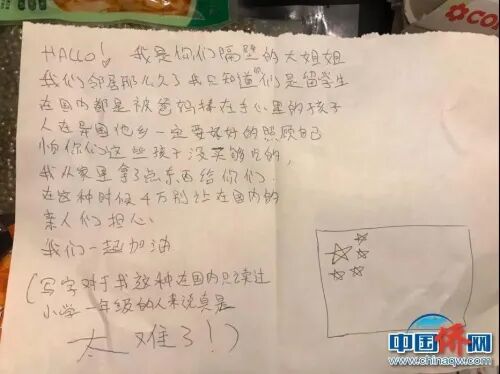 HALLO! 我是你们隔壁的大姐姐
我们邻居那么久了我只知道你们是留学生
在国内都是被爸妈捧在手心里的孩子
人在异国他乡一定要好好的照顾自己
怕你们这些孩子没买够吃的,
我从家里拿了点东西给你们.
在这种时候千万别让在国内的
亲人们担心
我们一起加油
(写字对于我这种在国内只读过
小学一年级的人来说真是
太难了!)
CO
中国侨网
www.chinaqw.com